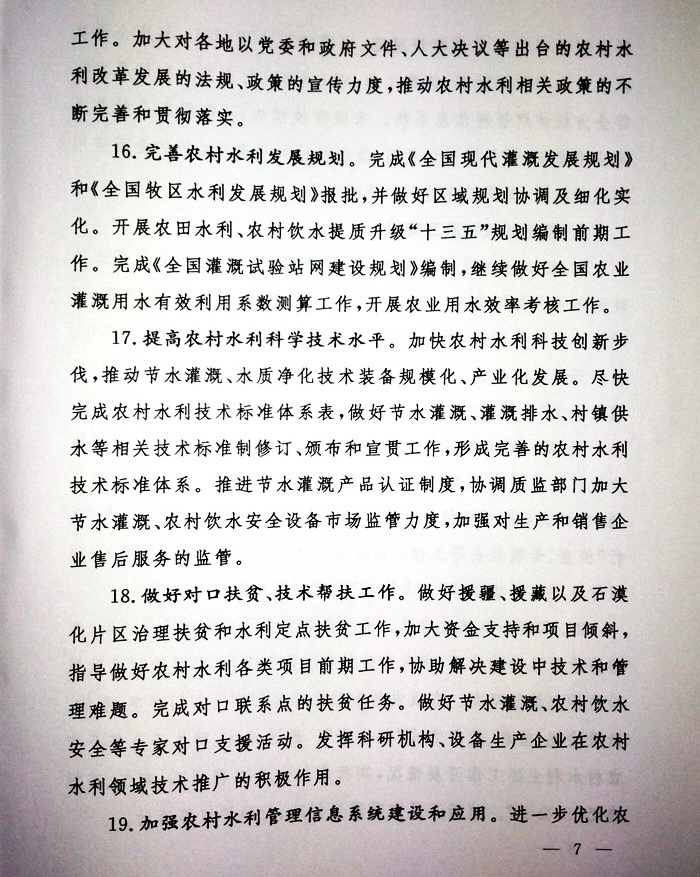 工作。加大对各地以党委和政府文件、人大决议等出台的农村水
利改革发展的法规、政策的宣传力度,推动农村水利相关政策的不
断完善和贯彻落实。
16.完善农村水利发展规划。完成《全国现代灌溉发展规划》
和《全国牧区水利发展规划》报批,并做好区域规划协调及细化实
化。开展农田水利、农村饮水提质升级“十三五”规划编制前期工
作。完成《全国灌溉试验站网建设规划》编制,继续做好全国农业
灌溉用水有效利用系数测算工作,开展农业用水效率考核工作。
17.提高农村水利科学技术水平。加快农村水利科技创新步
伐,推动节水灌溉、水质净化技术装备规模化、产业化发展。尽快
完成农村水利技术标准体系表,做好节水灌溉、灌溉排水、村镇供
水等相关技术标准制修订、颁布和宣贯工作,形成完善的农村水利
技术标准体系。推进节水灌溉产品认证制度,协调质监部门加大
节水灌溉、农村饮水安全设备市场监管力度,加强对生产和销售企
业售后服务的监管。
18.做好对口扶贫、技术帮扶工作。做好援疆、援藏以及石漠
化片区治理扶贫和水利定点扶贫工作,加大资金支持和项目倾斜,
指导做好农村水利各类项目前期工作,协助解决建设中技术和管
理难题。完成对口联系点的扶贫任务。做好节水灌溉、农村饮水
安全等专家对口支援活动。发挥科研机构、设备生产企业在农村
水利领域技术推广的积极作用。
19.加强农村水利管理信息系统建设和应用。进一步优化农
— 7 —